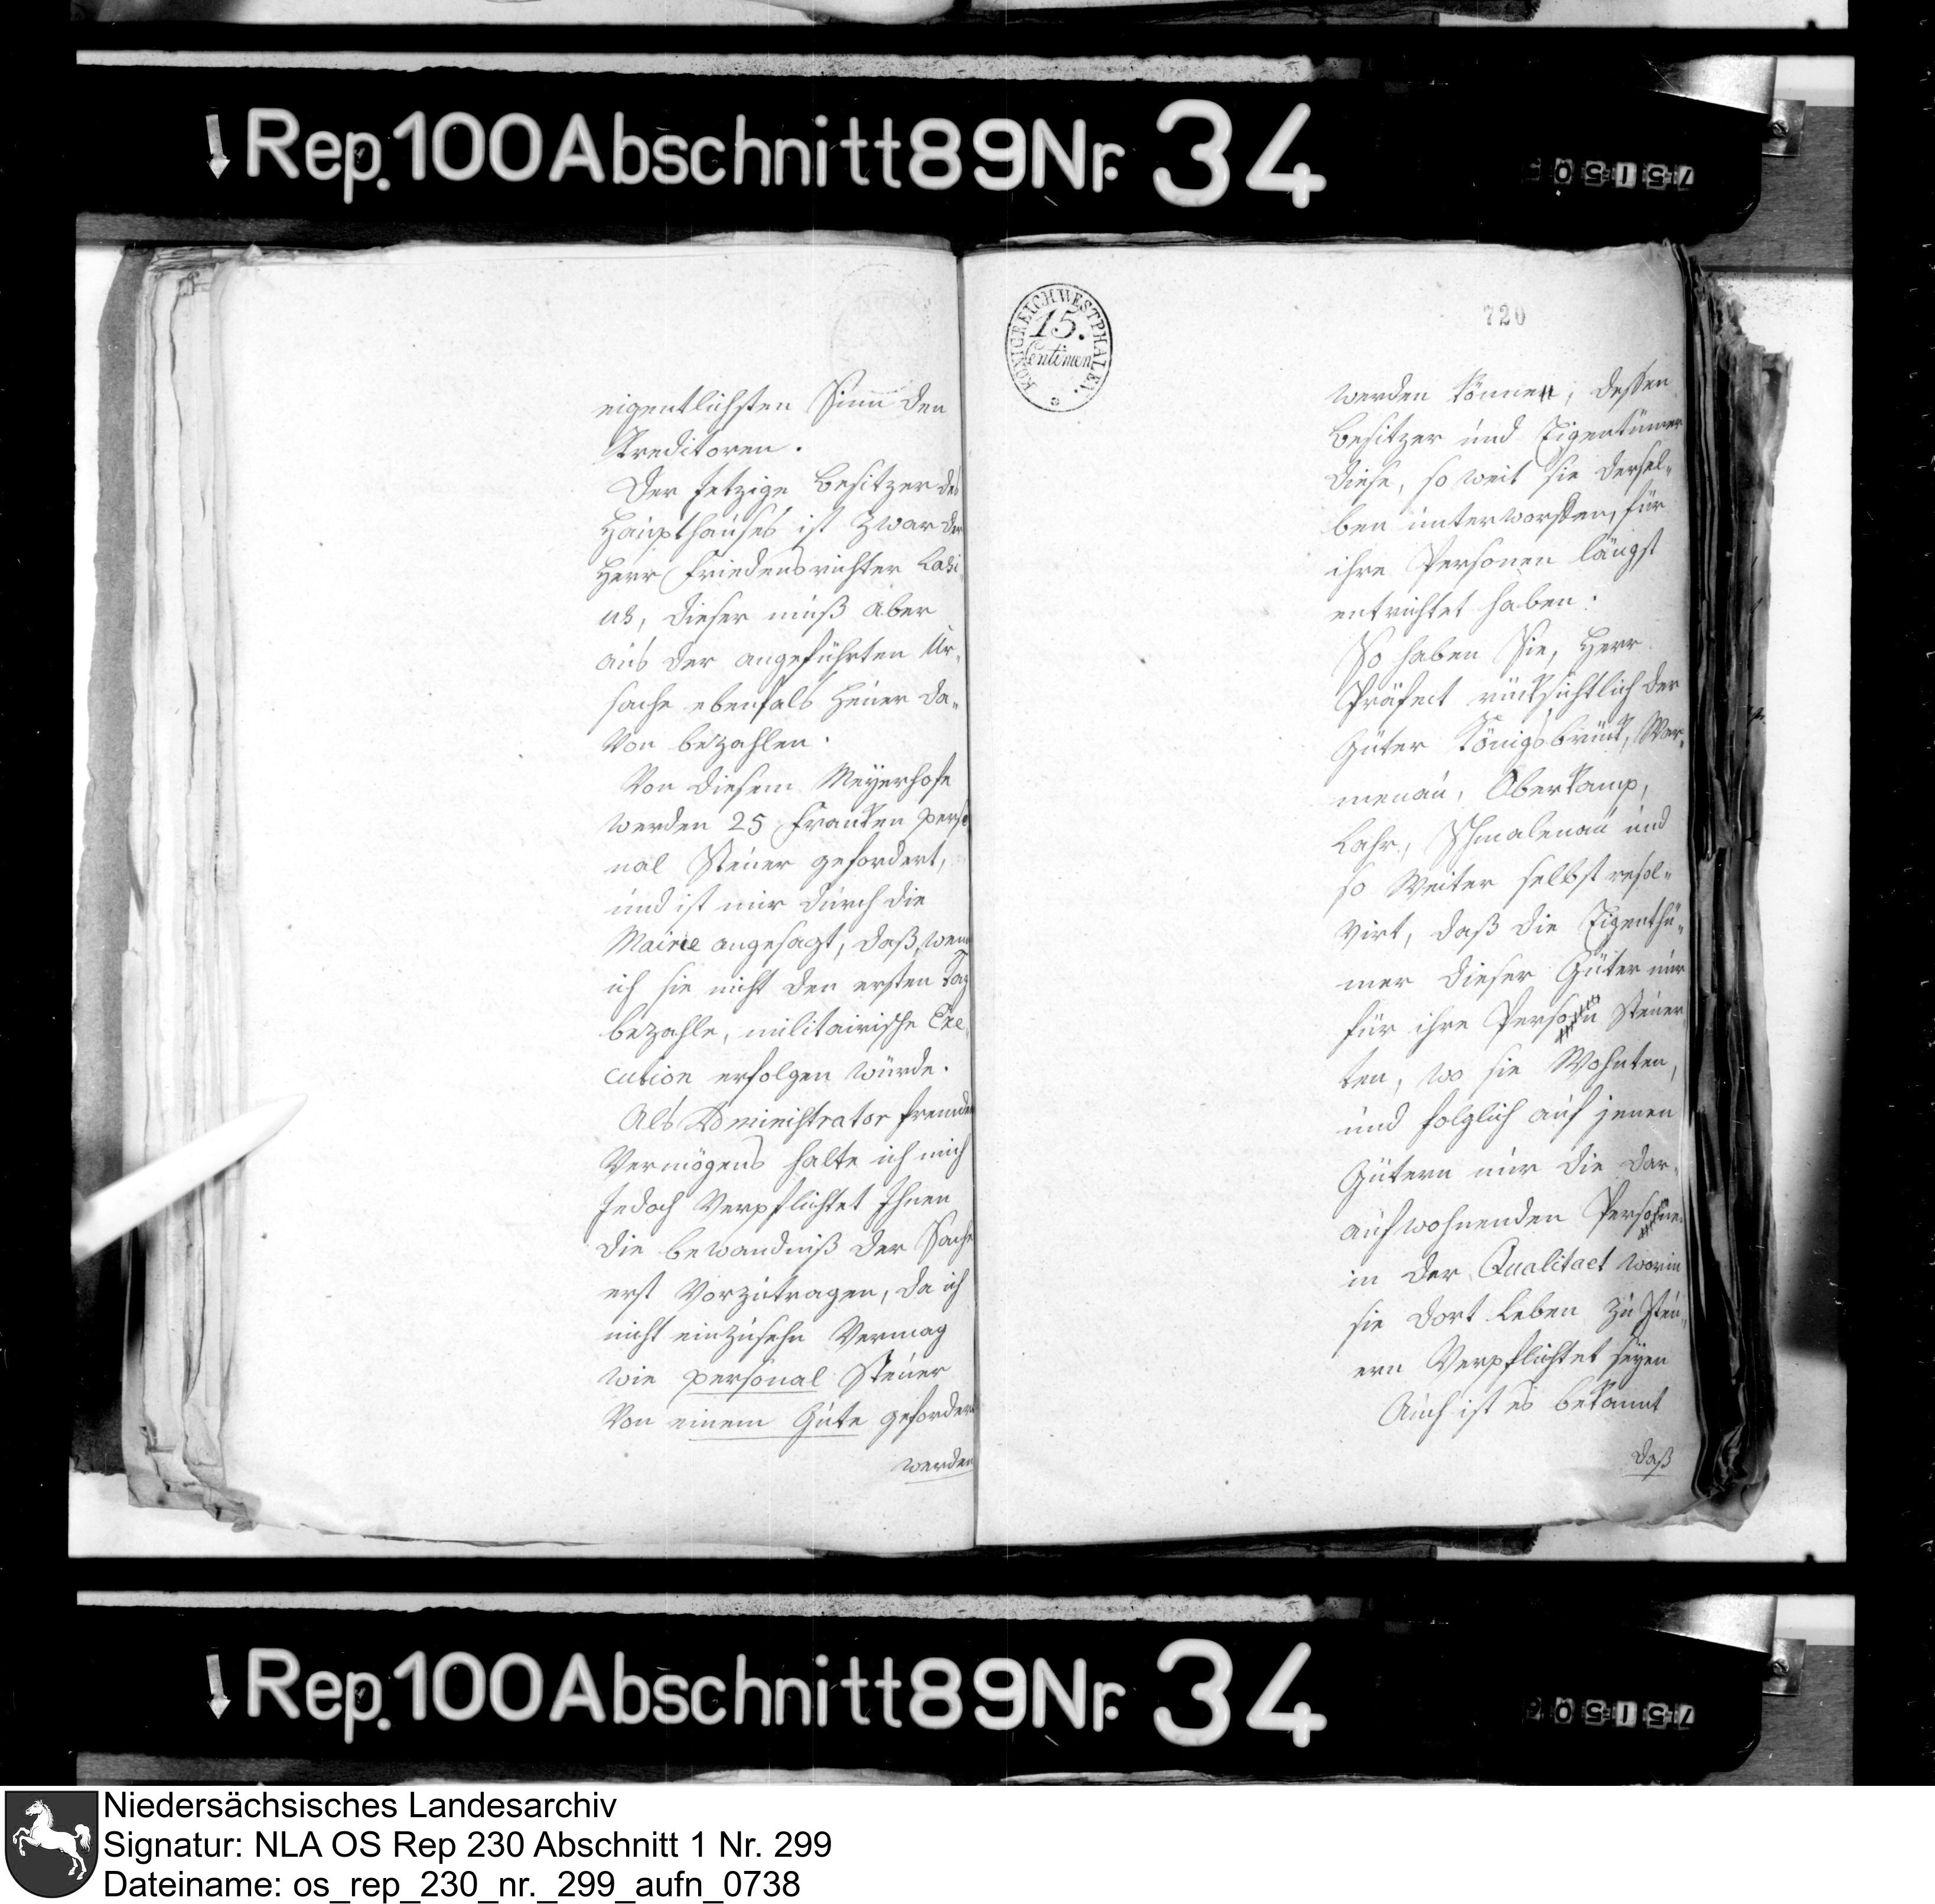 Rep. 100 Abschnitt 89 Nr. 34
eigentlichsten Sinn den
Kreditoren.
Der Jetzige Besitzer des
Haupthauses ist zwar der
Herr Friedensrichter Lasi
us, dieser muß aber
aus der angeführten Ur-
sache ebenfals Heuer da-
von bezahlen.
Von diesem Meyerhofe
werden 25 Franken perso
nal Steuer gefordert,
und ist mir durch die
Mairie angesagt, daß, wenn
ich sie nicht den ersten Tag
bezahle, militairische Exe
cution erfolgen würde.
Als Administrator fremden
Vermögens halte ich mich
Jedoch Verpflichtet Ihnen
die bewandniß der Sache
erst Vorzutragen, da ich
nicht einzusehn Vermag
wie personal Steuer
Von einem Gute gefordert
werden
KÖNIGREICH WESTPHALEN.
15.
Centimen
720
werden können, dessen
Besitzer und Eigentümer
diese, so weit sie dersel-
ben unterworfen, für
ihre Personen längst
entrichtet haben.
So haben Sie, Herr
Präfect rücksichtlich der
Güter Königsbrück, War-
menau, Oberkamp,
Lahr, Schmalenau und
so weiter selbst resol-
virt, daß die Eigenthü-
mer dieser Güter nur
für ihre Person Steuer
ten, wo sie Wohnten,
und folglich auf jenen
Gütern nur die dar-
auf wohnenden Personen
in der Qualitaet worin
sie dort leben zu steu-
ern Verpflichtet seyen
Auch ist es bekannt
daß
Rep. 100 Abschnitt 89 Nr. 34
Niedersächsisches Landesarchiv
Signatur: NLA OS Rep 230 Abschnitt 1 Nr. 299
Dateiname: os_rep_230_nr._299_aufn_0738